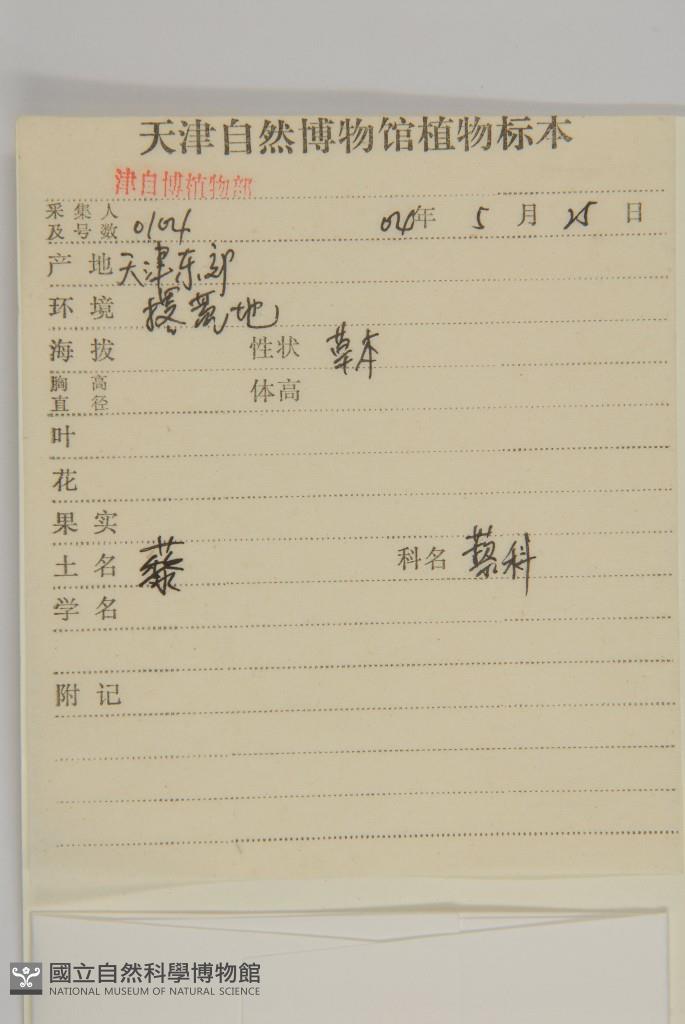 天津自然博物馆植物标本
津自博植物部
采集人及号数 0104 04年 5 月 25 日
产地 天津东郊
环境 撂荒地
海拔 性状 草本
胸高直径 体高
叶
花
果实
土名 藜 科名 藜科
学名
附记
國立自然科學博物館
NATIONAL MUSEUM OF NATURAL SCIENCE